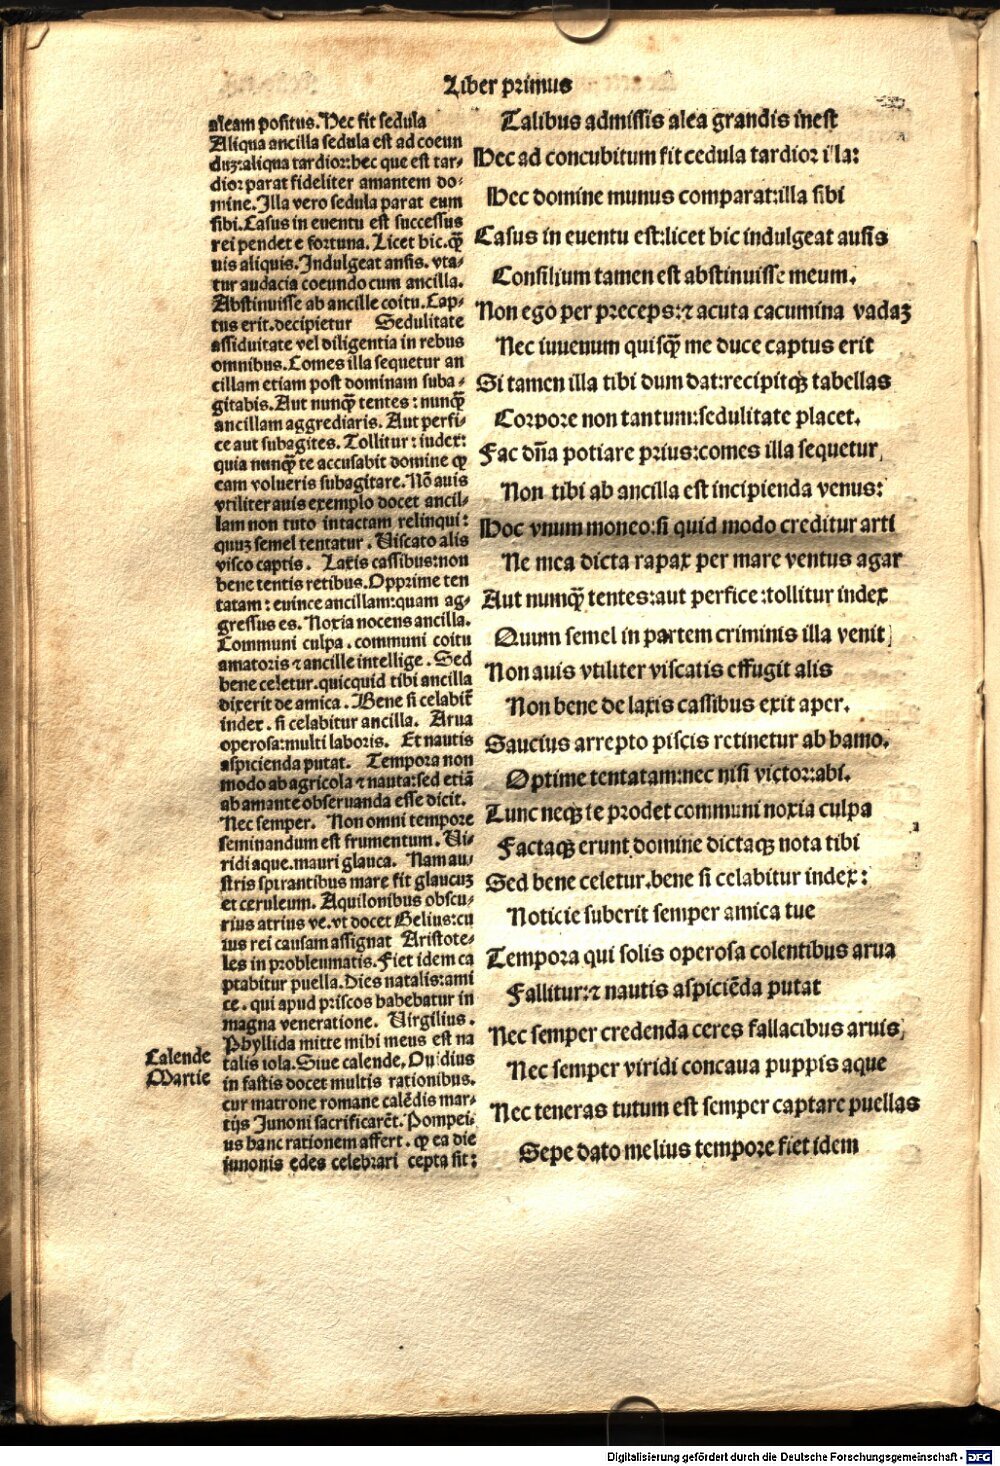 Liber primus
aleam positus. Hec fit sedula
Aliqua ancilla sedula est ad coeun
duꝫ: aliqua tardior: hec que est tar-
dior parat fideliter amantem do-
mine. Illa vero sedula parat eum
sibi. Casus in euentu est successus
rei pendet e fortuna. Licet hic. qꝫ
uis aliquis. Indulgeat ausis. vta-
tur audacia coeundo cum ancilla.
Abstinuisse ab ancille coitu. Cap-
tus erit. decipietur Sedulitate
assiduitate vel diligentia in rebus
omnibus. Comes illa sequetur an
cillam etiam post dominam suba-
gitabis. Aut nunqꝫ tentes: nunqꝫ
ancillam aggrediaris. Aut perfi-
ce aut subagites. Tollitur: iudex:
quia nunqꝫ te accusabit domine qꝫ
eam volueris subagitare. Nō auis
vtiliter auis exemplo docet ancil-
lam non tuto intactam relinqui:
quuꝫ semel tentatur. Uiscato alis
visco captis. Laxis cassibus: non
bene tentis retibus. Opprime ten
tatam: euince ancillam: quam ag-
gressus es. Noxia nocens ancilla.
Communi culpa. communi coitu
amatoris ⁊ ancille intellige. Sed
bene celetur. quicquid tibi ancilla
dixerit de amica. Bene si celabit̄
index. si celabitur ancilla. Arua
operosa: multi laboris. Et nautis
aspicienda putat. Tempora non
modo ab agricola ⁊ nauta: sed etiā
ab amante obseruanda esse dicit.
Nec semper. Non omni tempore
seminandum est frumentum. Ui-
ridi aque. mauri glauca. Nam au-
stris spirantibus mare fit glaucuꝫ
et ceruleum. Aquilonibus obscu-
rius atrius ve. vt docet Gelius: cu
ius rei causam assignat Aristote-
les in probleumatis. Fiet idem ca
ptabitur puella. Dies natalis: ami
ce. qui apud priscos habebatur in
magna veneratione. Uirgilius.
Phyllida mitte mihi meus est na
talis iola. Siue calende. Ouidius
in fastis docet multis rationibus.
cur matrone romane calēdis mar-
tijs Junoni sacrificarēt. Pompei-
us hanc rationem affert. qꝫ ea die
junonis edes celebrari cepta sit:
Calende
Martie
Talibus admissis alea grandis inest
Hec ad concubitum fit cedula tardior illa:
Hec domine munus comparat: illa sibi
Casus in euentu est: licet hic indulgeat ausis
Consilium tamen est abstinuisse meum.
Non ego per preceps: ⁊ acuta cacumina vadaꝫ
Nec iuuenum quisqꝫ me duce captus erit
Si tamen illa tibi dum dat: recipitqꝫ tabellas
Corpore non tantum: sedulitate placet.
Fac dn̄a potiare prius: comes illa sequetur,
Non tibi ab ancilla est incipienda venus:
Hoc vnum moneo: si quid modo creditur arti
Ne mea dicta rapax per mare ventus agat
Aut nunqꝫ tentes: aut perfice: tollitur index
Quum semel in partem criminis illa venit
Non auis vtiliter viscatis effugit alis
Non bene de laxis cassibus exit aper.
Saucius arrepto piscis retinetur ab hamo.
Optime tentatam: nec nisi victor: abi.
Tunc neqꝫ te prodet communi noxia culpa
Factaqꝫ erunt domine dictaqꝫ nota tibi
Sed bene celetur. bene si celabitur index:
Noticie suberit semper amica tue
Tempora qui solis operosa colentibus arua
Fallitur: ⁊ nautis aspiciēda putat
Nec semper credenda ceres fallacibus aruis,
Nec semper viridi concaua puppis aque
Nec teneras tutum est semper captare puellas
Sepe dato melius tempore fiet idem
Digitalisierung gefördert durch die Deutsche Forschungsgemeinschaft - DFG